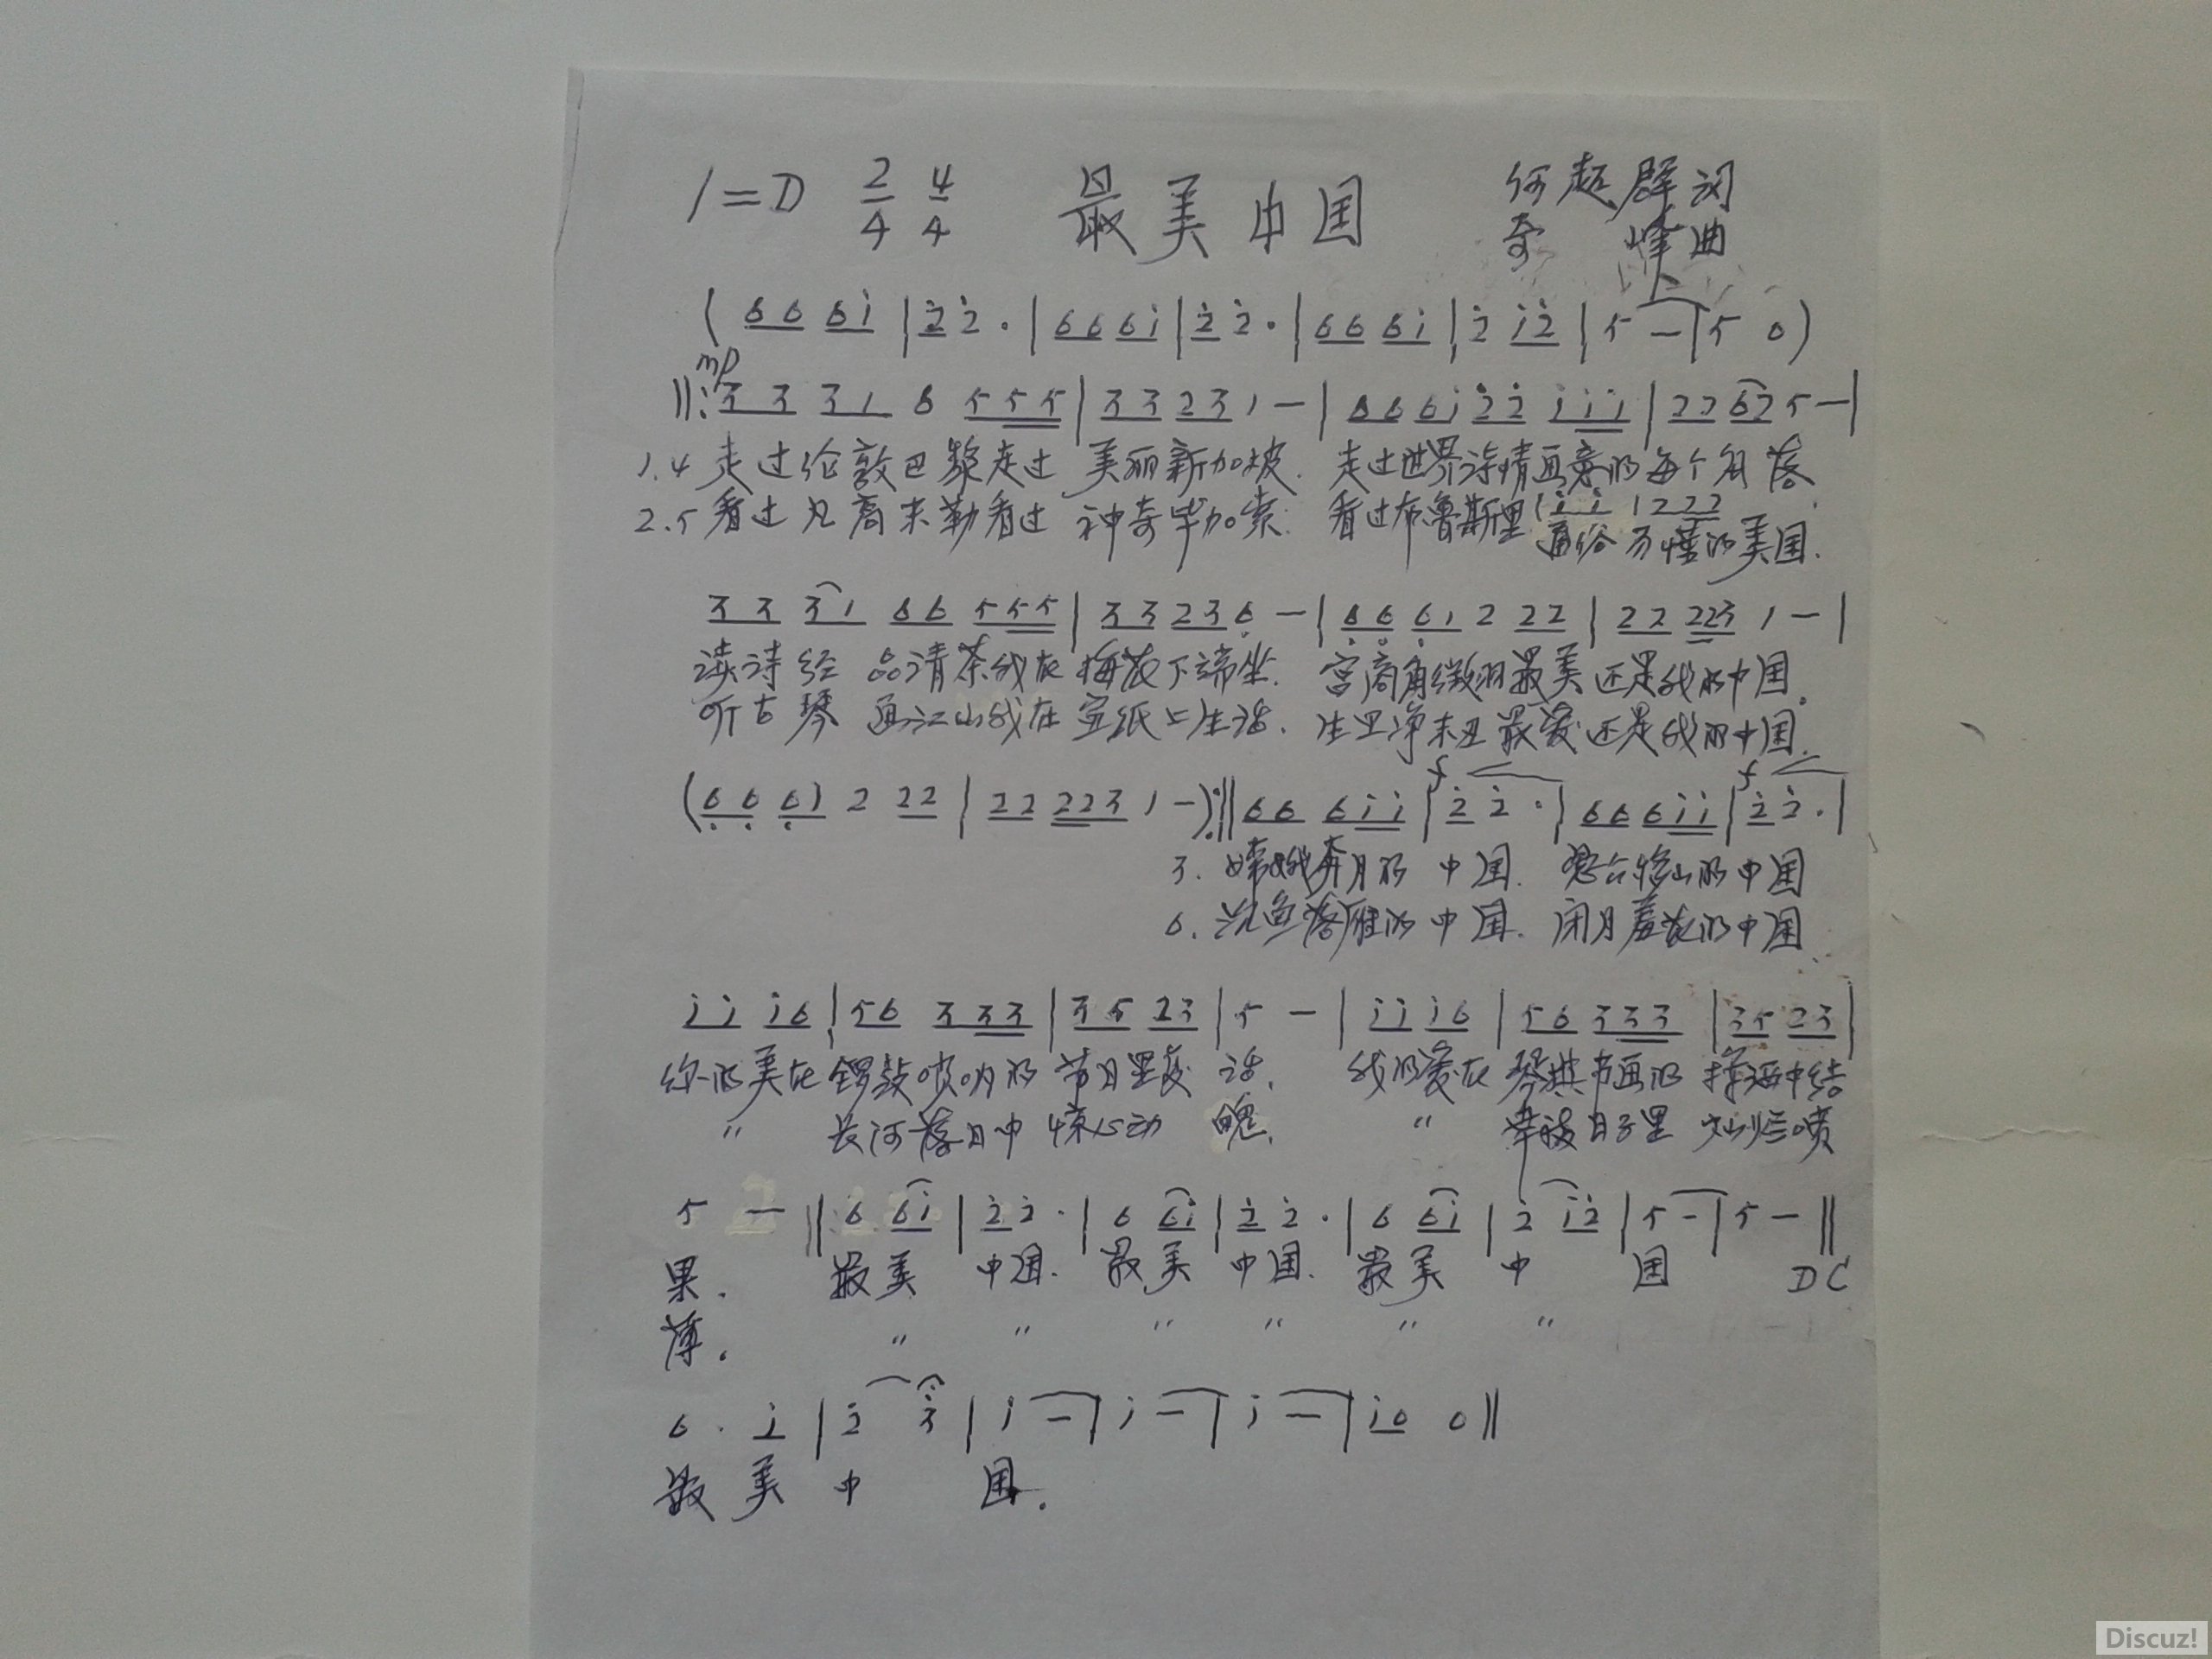 1=D 2/4 4/4 最美中国 何超群词
奇峰曲
( 6 6 6 i | 2̇ 2̇ · | 6 6 6 i | 2̇ 2̇ · | 6 6 6 i | 2̇ i 2̇ | 5 — | 5 0 )
mp
‖: 3 3 3 1 6 5 5 5 | 3 3 2 3 1 — | 6 6 6 i 2̇ 2̇ i i i | 2 2 6 2 5 — |
1.4 走过伦敦巴黎走过 美丽新加坡. 走过世界诗情画意的每个角落
2.5 看过凡高米勒看过 神奇毕加索. 看过布鲁斯里 通俗易懂的美国.
i i 1 2 2 2
3 3 3 1 6 6 5 5 5 | 3 3 2 3 6̣ — | 6̣ 6̣ 6̣ 1 2 2 2 | 2 2 2 2 3 1 — |
读诗经 品清茶我在 梅花下端坐. 宫商角徵羽最美还是我的中国.
听古琴 画江山我在 宣纸上生活. 生旦净末丑最爱还是我的中国.
f f
( 6̣ 6̣ 6̣ 1 2 2 2 | 2 2 2 2 3 1 — ) :‖ 6 6 6 i i | 2̇ 2̇ · | 6 6 6 i i | 2̇ 2̇ · |
3. 嫦娥奔月的 中国. 愚公移山的中国
6. 沉鱼落雁的 中国. 闭月羞花的中国
i i i 6 | 5 6 3 3 3 | 3 5 2 3 | 5 — | i i i 6 | 5 6 3 3 3 | 3 5 2 3 |
你的美在 锣鼓唢呐的 节日里复 活. 我的爱在 琴棋书画的 挥洒中结
〃 长河落日中 惊心动 魄. 〃 幸福日子里 灿烂喷
5 — ‖ 6 6 i | 2̇ 2̇ · | 6 6 i | 2̇ 2̇ · | 6 6 i | 2̇ i 2̇ | 5 — | 5 — ‖
果. 最美 中国. 最美 中国. 最美 中 国 DC
薄. 〃 〃 〃 〃 〃 〃
6 · i | 2̇ 3̇ | i — | i — | i — | i 0 0 ‖
最 美 中 国.
Discuz!